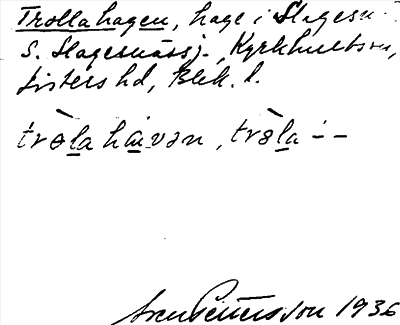 Trollahagen, hage i Slagesn
S. Slagesnässj., Kyrkhultssn,
Listers hd, Blek. l.
tròl̲a ha̲i̲vən, tròl̲a – –
Sven Pettersson 1936